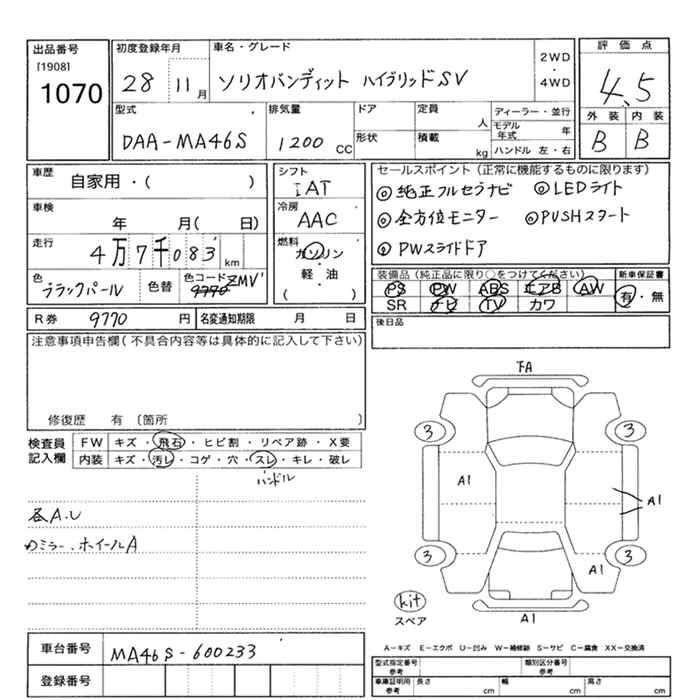 出品番号
[1908]
1070
初度登録年月
28 11月
車名・グレード
ソリオバンディット ハイブリッドSV
2WD
・
4WD
評価点
4.5
外装 内装
B B
型式
DAA-MA46S
排気量
1200 CC
ドア
形状
定員
人
積載
kg
ディーラー・並行
モデル年式 年
ハンドル 左・右
車歴
自家用・( )
車検
年 月( 日)
走行
4万7千083 km
色
ブラックパール
色替
色コード
9770 ZMV
シフト
IAT
冷房
AAC
燃料
ガソリン
・
軽・油
( )
セールスポイント(正常に機能するものに限ります)
◎純正フルセグナビ ◎LEDライト
◎全方位モニター ◎PUSHスタート
◎PWスライドドア
装備品(純正品に限り○をつけてください)
PS PW ABS エアB AW
SR ナビ TV カワ
新車保証書
有・無
R券 9770 円
名変通知期限 月 日
後日品
注意事項申告欄(不具合内容等は具体的に記入して下さい)
修復歴 有 〔箇所
検査員
記入欄
FW キズ・飛石・ヒビ割・リペア跡・X要
内装 キズ・汚レ・コゲ・穴・スレ・キレ・破レ
ハンドル
各A.U
ミラー、ホイールA
車台番号
MA46S-600233
登録番号
FA
3 3
A1
A1
3 3
A1
kit
スペア
A1
A-キズ E-エクボ U-凹み W-補修跡 S-サビ C-腐食 XX-交換済
型式指定番号
参考
類別区分番号
参考
車庫証明用
参考
長さ cm
幅 cm
高さ cm